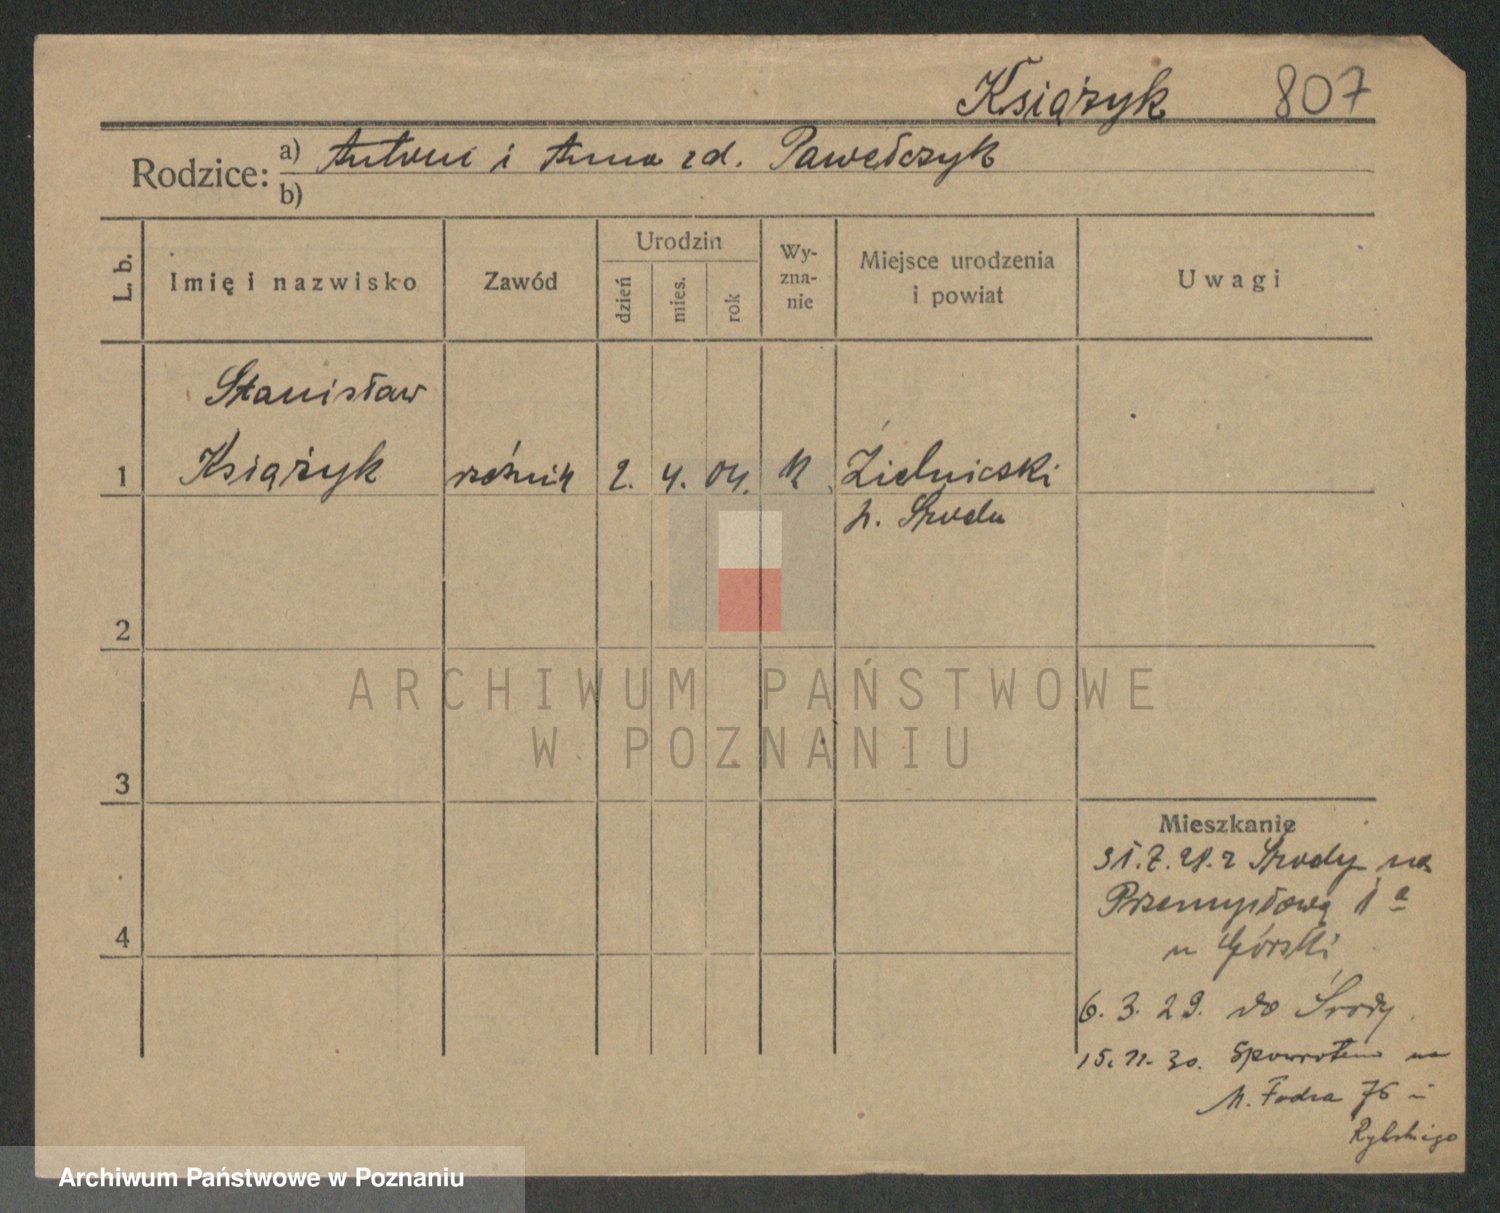 Książyk 807
Rodzice: a) Antoni i Anna zd. Pawełczyk
b)
L. b. Imię i nazwisko Zawód Urodzin dzień mies. rok Wy-zna-nie Miejsce urodzenia i powiat Uwagi
Stanisław
1 Książyk rzeźnik 2. 4. 04. Zielniczki
p. Środa
2
3
4
Mieszkanie
31.7.28. z Środy na
Przemysłową 1 a
u Górski
6. 3. 29. do Środy
15. 11. 30. Spowrotem na
M. Focha 76 u
Rybskiego
ARCHIWUM PAŃSTWOWE
W POZNANIU
Archiwum Państwowe w Poznaniu